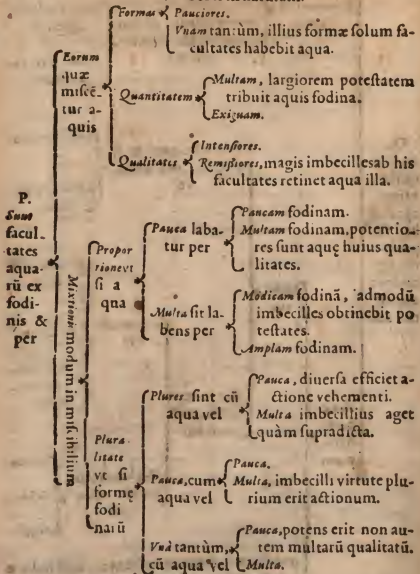 Formas Pauciores.
Vnam tantùm, illius formæ solum fa-
cultates habebit aqua.
Eorum
quæ
miscē-
tur a-
quis
Quantitatem
Multam, largiorem potestatem
tribuit aquis fodina.
Exiguam.
Qualitates
Intensiores.
Remissiores, magis imbecilles ab his
facultates retinet aqua illa.
P.
Sunt
facul-
tates
aqua-
rū ex
fodi-
nis &
per
Mixtionis modum in miscibilium
Propor
tionevt
si a
qua
Pauca laba-
tur per
Paucam fodinam.
Multam fodinam, potentio-
res sunt aquę huius qua-
litates.
Multa sit la-
bens per
Modicam fodinā, admodū
imbecilles obtinebit po
testates.
Amplam fodinam.
Plura
litate
vt si
formę
fodi
narū
Plures sint cū
aqua vel
Pauca, diuersa efficiet a-
ctione vehementi.
Multa imbecillius aget
quàm supradicta.
Pauca, cum
aqua vel
Pauca.
Multa, imbecilli virtute plu-
rium erit actionum.
Vna tantùm,
cū aqua vel
Pauca, potens erit non au-
tem multarū qualitatū.
Multa.